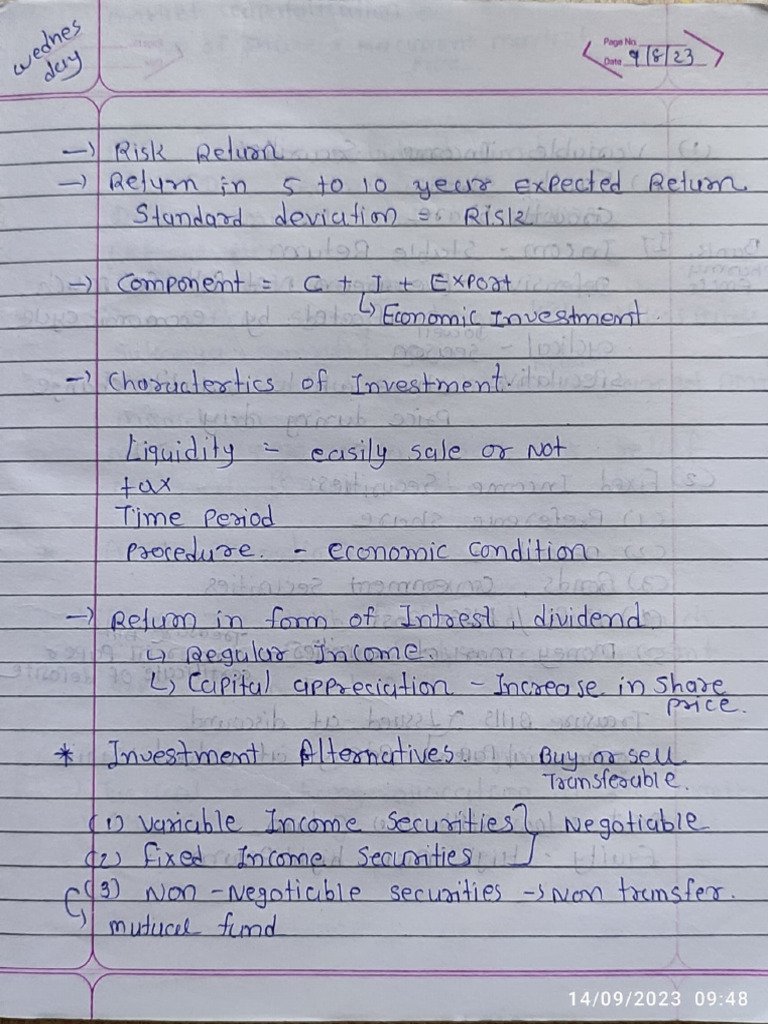 Wednes
day
Page No.
Date 9/8/23
→ Risk Return
→ Return in 5 to 10 years Expected Return
Standard deviation = Risk
→ Component = C + I + Export
↳ Economic Investment.
→ Charactertics of Investment.
Liquidity - easily sale or Not
tax
Time Period
Procedure. - economic condition
→ Return in form of Intrest, dividend
↳ Regular Income.
↳ Capital appreciation - Increase in share
price.
* Investment Alternatives. Buy or sell
Transferable.
(1) Variable Income Securities] Negotiable
(2) Fixed Income Securities
(3) Non-Negotiable securities → Non transfer.
↳ mutual fund
14/09/2023 09:48